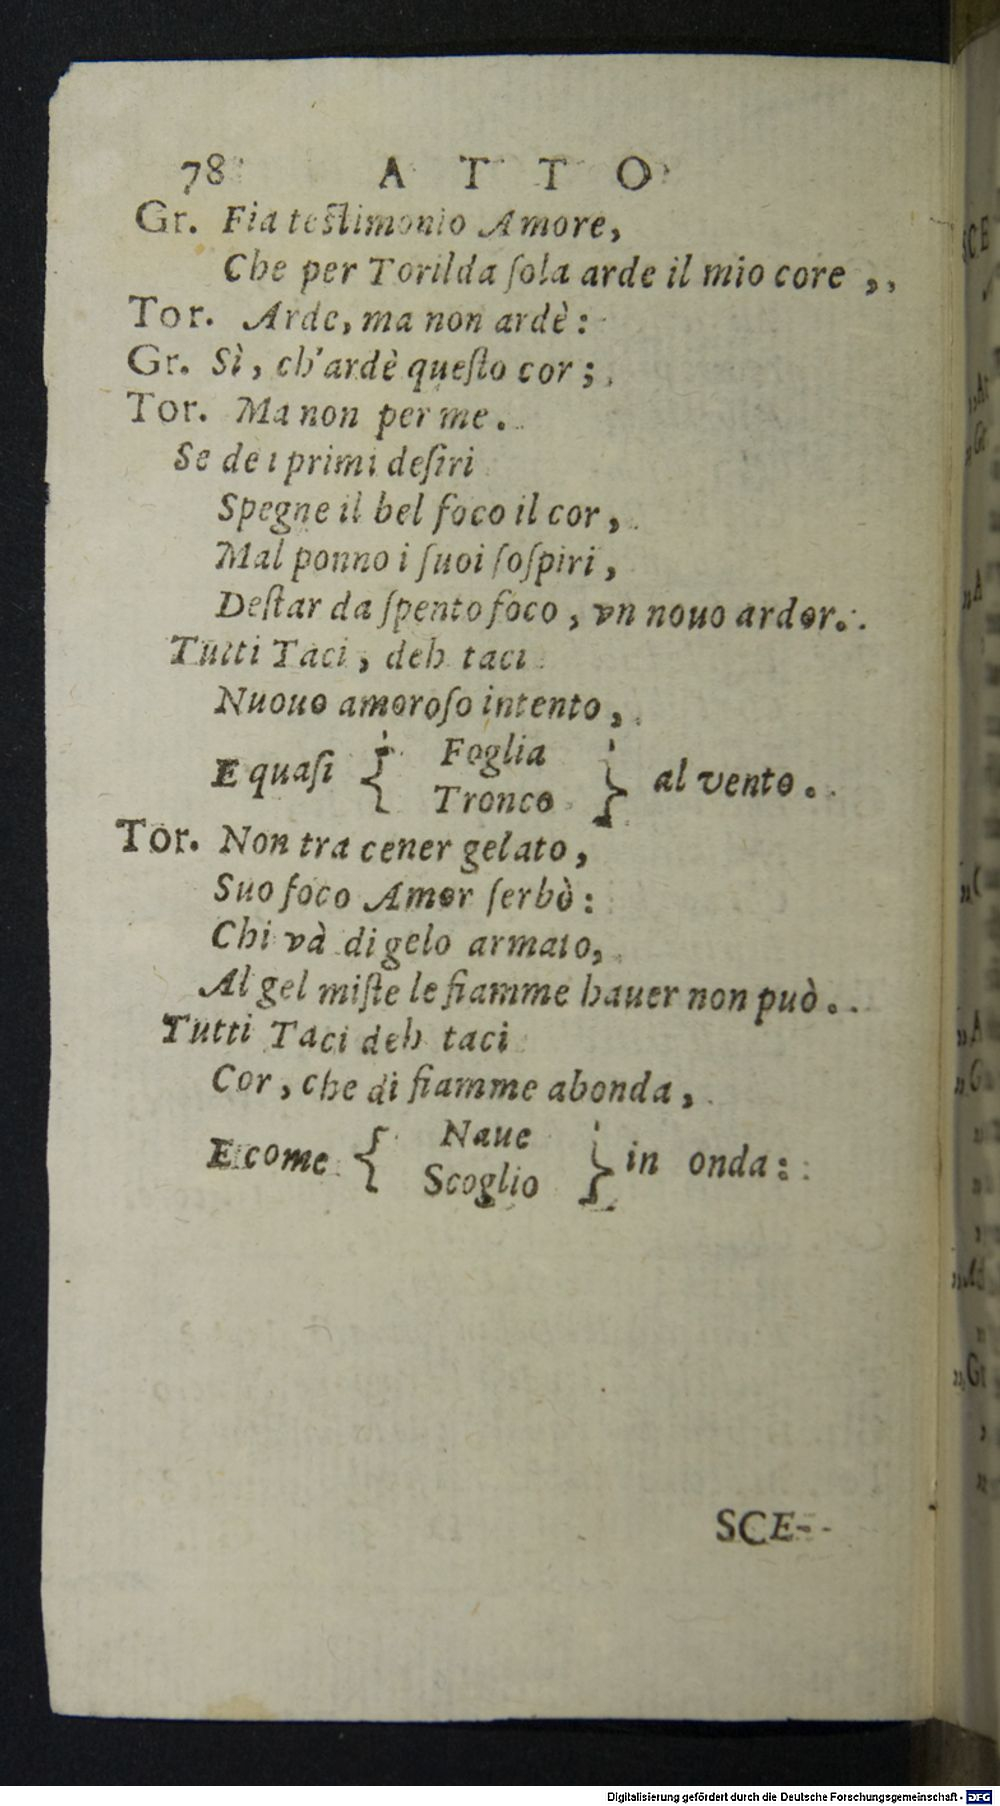 78 ATTO
Gr. Fia teſtimonio Amore,
Che per Torilda ſola arde il mio core,
Tor. Arde, ma non ardè:
Gr. Sì, ch'ardè queſto cor;
Tor. Ma non per me.
Se de i primi deſiri
Spegne il bel foco il cor,
Mal ponno i ſuoi ſoſpiri,
Deſtar da ſpento foco, vn nouo ardor.
Tutti Taci, deh taci
Nuouo amoroſo intento,
E quaſi { Foglia
Tronco } al vento.
Tor. Non tra cener gelato,
Suo foco Amor ſerbò:
Chi và di gelo armato,
Al gel miſte le fiamme hauer non può.
Tutti Taci deh taci
Cor, che di fiamme abonda,
E come { Naue
Scoglio } in onda:
SCE-
Digitalisierung gefördert durch die Deutsche Forschungsgemeinschaft - DFG